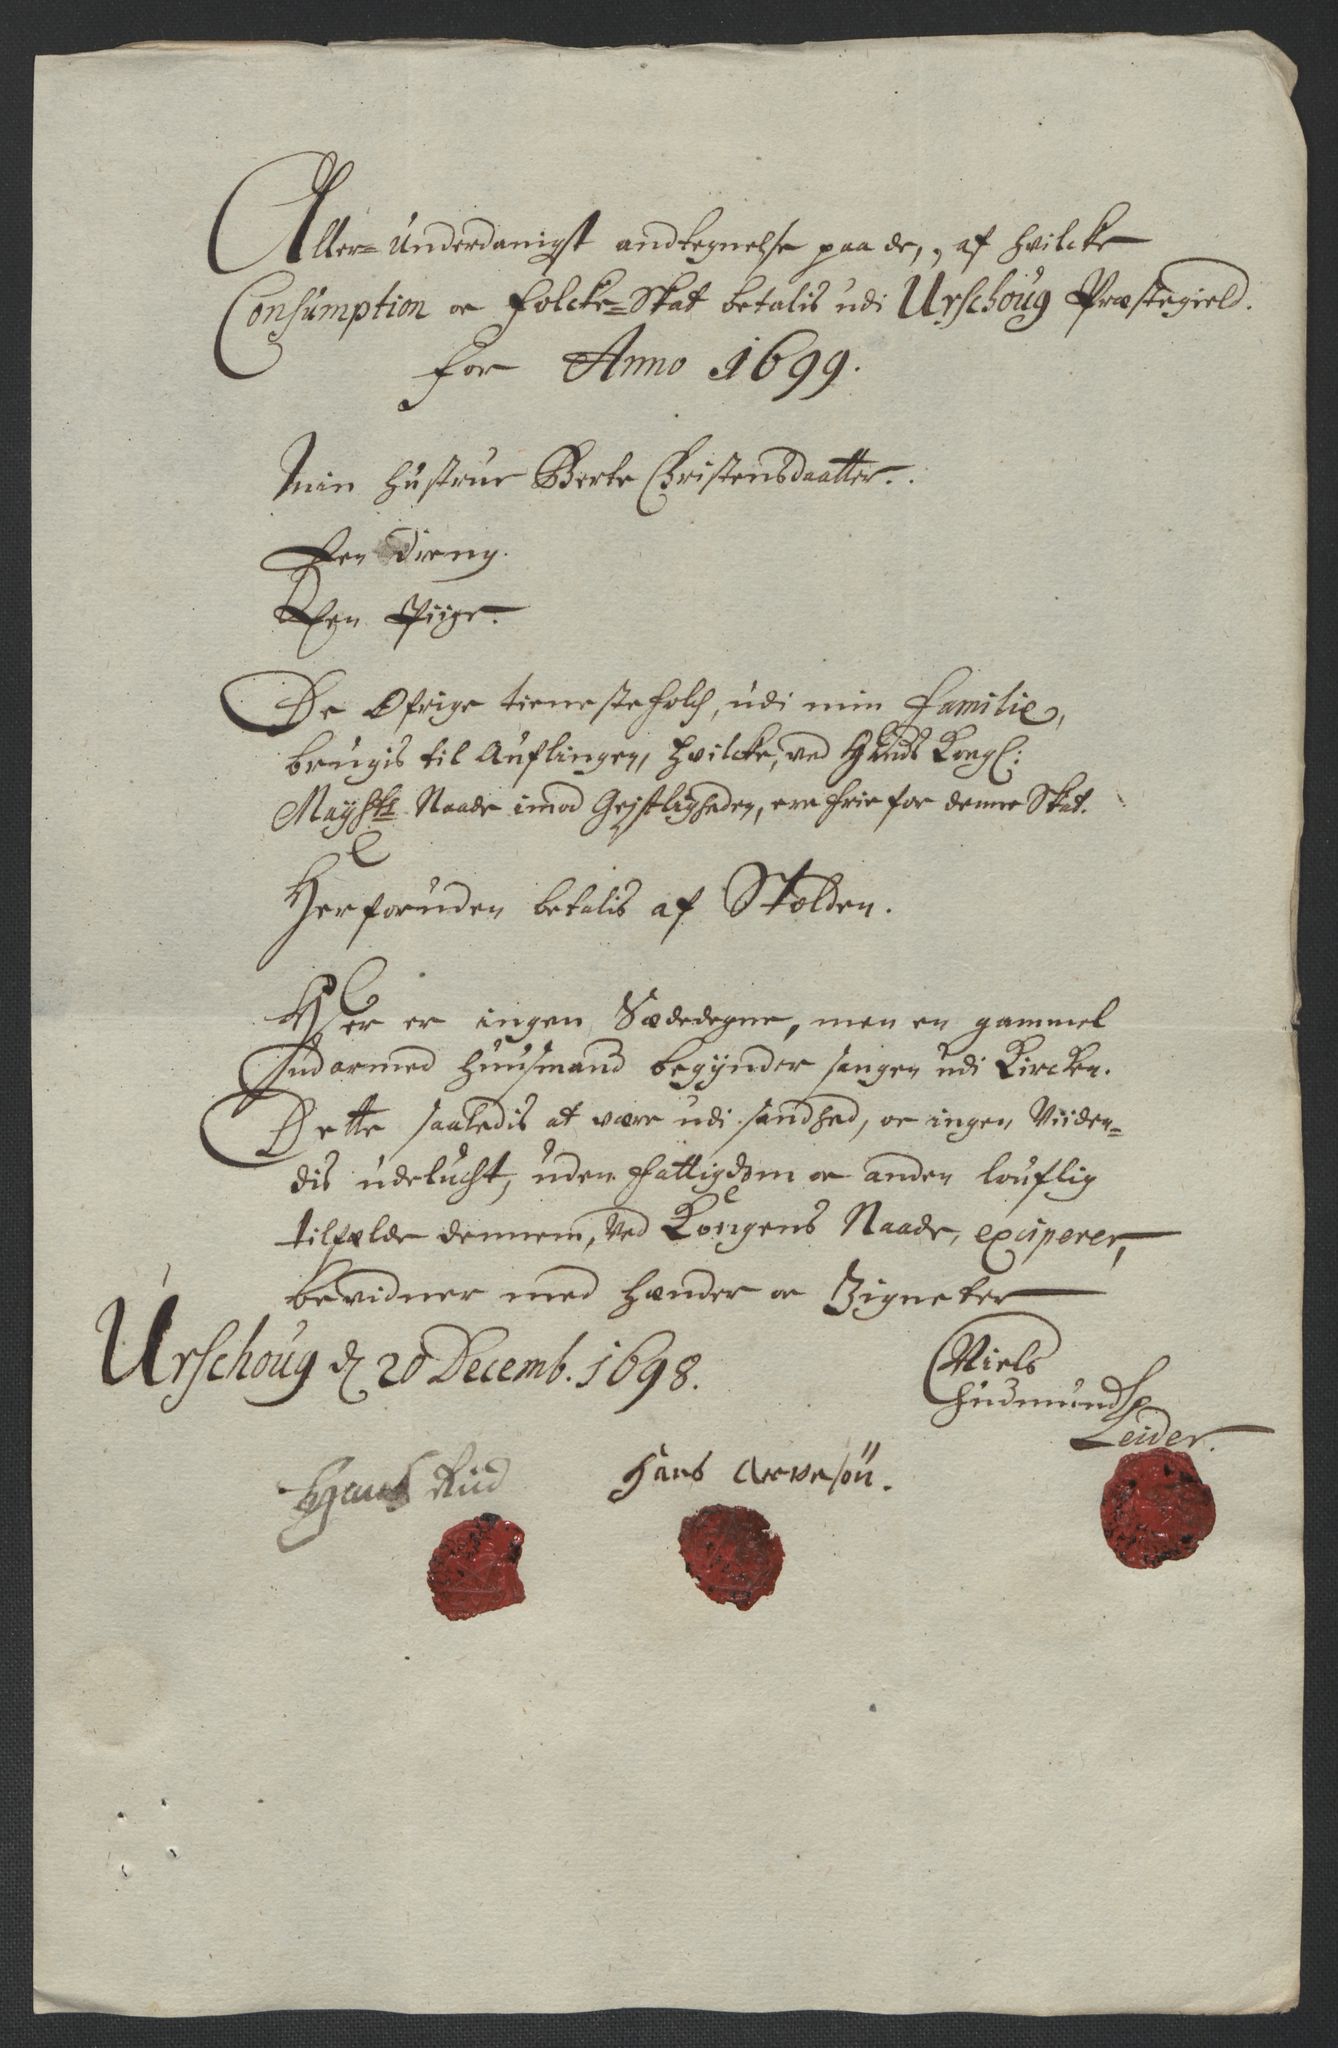 Aller-Underdanigst andtegnelse paa de, af hvilcke
Consumption oc Folcke-Skat betalis udi Urschoug Præstegield.
for Anno 1699.
Min Hustrue Berte Christensdaatter.
Een Dreng.
Een Piige.
De Øfrige tienestefolch, udi min Familie,
brugis til Auflingen, hvilcke, ved Hands Kongl:
Mayhts Naade imod Geistligheden, ere frie for denne Skat.
Herforuden betalis af Stolden.
Her er ingen Sædedegne, men en gammel
Indarmed Huusmand begynder sangen udi Kircken.
Dette saaledis at være udi sandhed, oc ingen Viiden-
dis udelucht, uden fattigdom oc anden louflig
tilfælde dennem, ved Kongens Naade, exciperer,
bevidner med hænder oc Zigneter
Urschoug d 20 Decemb. 1698.
Niels
Gudmunds
Leider.
Hans Riid
Hans Arvesøn.